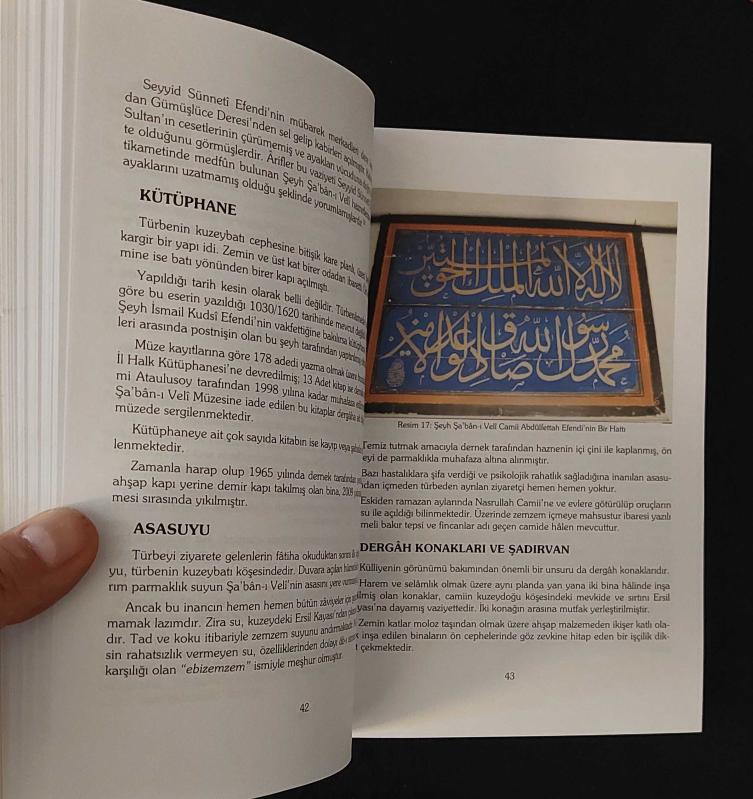 Seyyid Sünnetî Efendi'nin mübarek merkadleri
dan Gümüşlüce Deresi'nden sel gelip kabirleri açılmıştır.
Sultan'ın cesetlerinin çürümemiş ve ayakları vücuduna
te olduğunu görmüşlerdir. Ârifler bu vaziyeti Seyyid
tikametinde medfûn bulunan Şeyh Şa'bân-ı Velî
ayaklarını uzatmamış olduğu şeklinde yorumlamışlardır.
KÜTÜPHANE
Türbenin kuzeybatı cephesine bitişik kare planlı,
kargir bir yapı idi. Zemin ve üst kat birer odadan ibaretti.
mine ise batı yönünden birer kapı açılmıştı.
Yapıldığı tarih kesin olarak belli değildir.
göre bu eserin yazıldığı 1030/1620 tarihinde mevcut
Şeyh İsmail Kudsî Efendi'nin vakfettiğine bakılırsa
leri arasında postnişin olan bu şeyh tarafından
Müze kayıtlarına göre 178 adedi yazma olmak üzere
İl Halk Kütüphanesi'ne devredilmiş; 13 Adet kitap ise
mi Ataulusoy tarafından 1998 yılına kadar muhafaza
Şa'bân-ı Velî Müzesine iade edilen bu kitaplar dergâha ait
müzede sergilenmektedir.
Kütüphaneye ait çok sayıda kitabın ise kayıp veya
lenmektedir.
Zamanla harap olup 1965 yılında dernek tarafından
ahşap kapı yerine demir kapı takılmış olan bina, 2009
mesi sırasında yıkılmıştır.
ASASUYU
Türbeyi ziyarete gelenlerin fâtiha okuduktan sonra
yu, türbenin kuzeybatı köşesindedir. Duvara açılan
rım parmaklık suyun Şa'bân-ı Velî'nin asasını yere
Ancak bu inancın hemen hemen bütün zâviyeler için
mamak lazımdır. Zira su, kuzeydeki Ersil Kayası'ndan
dır. Tad ve koku itibariyle zemzem suyunu andırmaktadır.
sin rahatsızlık vermeyen su, özelliklerinden dolayı
karşılığı olan "ebizemzem" ismiyle meşhur olmuştur.
42
لا اله الا الله الملك الحق المبين
محمد رسول الله صادق الوعد الامين
Resim 17: Şeyh Şa'bân-ı Velî Camii Abdülfettah Efendi'nin Bir Hattı
Temiz tutmak amacıyla dernek tarafından haznenin içi çini ile kaplanmış, ön
eyi de parmaklıkla muhafaza altına alınmıştır.
Bazı hastalıklara şifa verdiği ve psikolojik rahatlık sağladığına inanılan asasu-
dan içmeden türbeden ayrılan ziyaretçi hemen hemen yoktur.
Eskiden ramazan aylarında Nasrullah Camii'ne ve evlere götürülüp oruçların
su ile açıldığı bilinmektedir. Üzerinde zemzem içmeye mahsustur ibaresi yazılı
meli bakır tepsi ve fincanlar adı geçen camide hâlen mevcuttur.
DERGÂH KONAKLARI VE ŞADIRVAN
Külliyenin görünümü bakımından önemli bir unsuru da dergâh konaklarıdır.
Harem ve selâmlık olmak üzere aynı planda yan yana iki bina hâlinde inşa
ilmiş olan konaklar, camiin kuzeydoğu köşesindeki mevkide ve sırtını Ersil
yası'na dayamış vaziyettedir. İki konağın arasına mutfak yerleştirilmiştir.
Zemin katlar moloz taşından olmak üzere ahşap malzemeden ikişer katlı ola-
inşa edilen binaların ön cephelerinde göz zevkine hitap eden bir işçilik dik-
t çekmektedir.
43